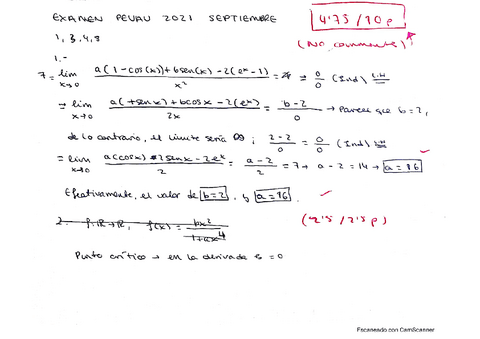 EXAMEN PEVAU 2021 SEPTIEMBRE
4'75 / 10 p
1, 3, 4, 8
(No comments)
1.-
7 = lim x→0 a(1-cos(x)) + b sen(x) - 2(e^x - 1) / x² = 0/0 (Ind) L.H
= lim x→0 a(+senx) + b cosx - 2(e^x) / 2x = b-2 / 0 → Parece que b=2,
de lo contrario, el límite sería ∞ ; 2-2 / 0 = 0/0 (Ind) L.H
= lim x→0 a(cosx) - 2senx - 2e^x / 2 = a-2 / 2 = 7 → a-2 = 14 → a=16
Efectivamente, el valor de b=2, y a=16.
2. f: R→R, f(x) = bx² / 1+ax⁴
(2'5 / 2'5 p)
Punto crítico → en la derivada es = 0
Escaneado con CamScanner